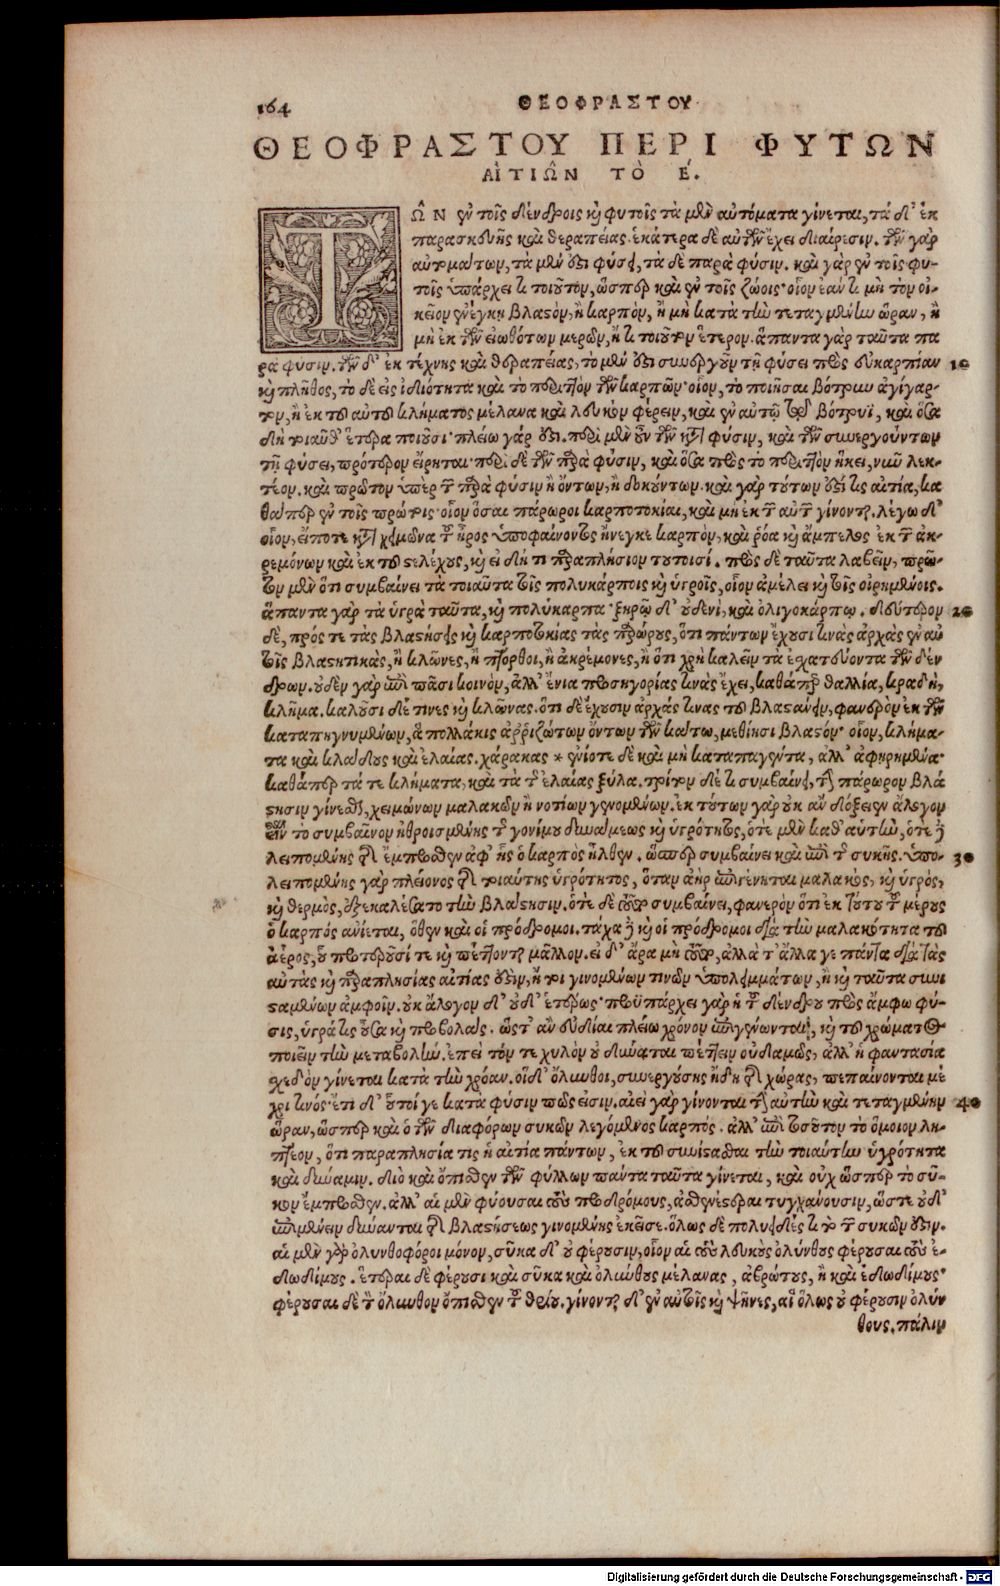 164
ΘΕΟΦΡΑΣΤΟΥ
ΘΕΟΦΡΑΣΤΟΥ ΠΕΡΙ ΦΥΤΩΝ
ΑἸΤΙΩ͂Ν ΤῸ Ε΄.
ΤΩ͂Ν ἐν τοῖς δένδροις καὶ φυτοῖς τὰ μὲν αὐτόματα γίνεται, τὰ δ' ἐκ
παρασκευῆς καὶ θεραπείας. ἑκάτερα δὲ αὐτῶν ἔχει διαίρεσιν. τῶν γὰρ
αὐτομάτων, τὰ μὲν ἐστι φύσει, τὰ δὲ παρὰ φύσιν. καὶ γὰρ ἐν τοῖς φυ-
τοῖς ὑπάρχει τι τοιοῦτον, ὥσπερ καὶ ἐν τοῖς ζώοις· οἷον ἐάν τι μὴ τὸν οἰ-
κεῖον ἐνέγκῃ βλαστὸν, ἢ καρπὸν, ἢ μὴ κατὰ τὴν τεταγμένην ὥραν, ἢ
μὴ ἐκ τῶν εἰωθότων μερῶν, ἤ τι τοιοῦτον ἕτερον. ἅπαντα γὰρ ταῦτα πα
ρὰ φύσιν. τῶν δ' ἐκ τέχνης καὶ θεραπείας, τὸ μὲν ἐστι συνεργοῦν τῇ φύσει πρὸς εὐκαρπίαν 10
καὶ πλῆθος, τὸ δὲ εἰς ἰδιότητα καὶ τὸ περιττὸν τῶν καρπῶν· οἷον, τὸ ποιῆσαι βότρυν ἀγίγαρ-
τον, ἢ ἐκ τοῦ αὐτοῦ κλήματος μέλανα καὶ λευκὸν φέρειν, καὶ ἐν αὐτῷ τῷ βότρυϊ, καὶ ὅσα
δὴ τοιαῦθ' ἕτερα ποιοῦσι· πλείω γάρ ἐστι. περὶ μὲν οὖν τῶν κατὰ φύσιν, καὶ τῶν συνεργούντων
τῇ φύσει, πρότερον εἴρηται· περὶ δὲ τῶν παρὰ φύσιν, καὶ ὅσα πρὸς τὸ περιττὸν ἥκει, νῦν λεκ-
τέον. καὶ πρῶτον ὑπὲρ τῶν παρὰ φύσιν ἢ ὄντων, ἢ δοκούντων. καὶ γὰρ τούτων ἐστί τις αἰτία, κα
θάπερ ἐν τοῖς πρώτοις· οἷον ὅσαι πάρωροι καρποτοκίαι, καὶ μὴ ἐκ τῶν αὐτῶν γίνονται. λέγω δ'
οἷον, εἴποτε κατὰ χειμῶνα τοῦ ἦρος ὑποφαίνοντος ἤνεγκε καρπὸν, καὶ ῥόα καὶ ἄμπελος ἐκ τῶν ἀκ-
ρεμόνων καὶ ἐκ τοῦ στελέχους, καὶ εἰ δή τι παραπλήσιον τουτοισί. πρὸς δὲ ταῦτα λαβεῖν, πρῶ-
τον μὲν ὅτι συμβαίνει τὰ τοιαῦτα τοῖς πολυκάρποις καὶ ὑγροῖς, οἷον ἀμέλει καὶ τοῖς εἰρημένοις.
ἅπαντα γὰρ τὰ ὑγρὰ ταῦτα, καὶ πολύκαρπα· ξηρῷ δ' οὐδενὶ, καὶ ὀλιγοκάρπῳ. δεύτερον 20
δὲ, πρός τε τὰς βλαστήσεις καὶ καρποτοκίας τὰς παρώρους, ὅτι πάντων ἔχουσί τινὰς ἀρχὰς ἐν αὐ
τοῖς βλαστητικὰς, ἢ κλῶνες, ἢ πτόρθοι, ἢ ἀκρέμονες, ἢ ὅτι χρὴ καλεῖν τὰ ἐχατεύοντα τῶν δέν
δρων. οὐδὲν γὰρ ἐπὶ πᾶσι κοινὸν, ἀλλ' ἔνια προσηγορίας τινὰς ἔχει, καθάπερ θαλλία, κράδη,
κλῆμα. καλοῦσι δέ τινες καὶ κλῶνας. ὅτι δὲ ἔχουσιν ἀρχάς τινας τοῦ βλαστάνειν, φανερὸν ἐκ τῶν
καταπηγνυμένων, ἃ πολλάκις ἀῤῥιζώτων ὄντων τῶν κάτω, μεθίησι βλαστόν· οἷον, κλήμα-
τα καὶ κλάδους καὶ ἐλαίας. χάρακας * ἐνίοτε δὲ καὶ μὴ καταπαγέντα, ἀλλ' ἀφηρημένα·
καθάπερ τά τε κλήματα, καὶ τὰ τῆς ἐλαίας ξύλα. τρίτον δέ τι συμβαίνει, τὴν πάρωρον βλά
στησιν γίνεσθαι, χειμώνων μαλακῶν ἢ νοτίων γενομένων. ἐκ τούτων γὰρ οὐκ ἂν δόξειεν ἄλογον
εἶναι τὸ συμβαῖνον ἠθροισμένης τῆς γονίμου δυνάμεως καὶ ὑγρότητος, ὁτὲ μὲν καθ' αὑτὴν, ὁτὲ δὲ
λειπομένης τῆς ἔμπροσθεν ἀφ' ἧς ὁ καρπὸς ἦλθεν. ὥσπερ συμβαίνει καὶ ἐπὶ τῆς συκῆς. ὑπο- 30
λειπομένης γὰρ πλείονος τῆς τοιαύτης ὑγρότητος, ὅταν ἀὴρ ἐπιγένηται μαλακὸς, καὶ ὑγρὸς,
καὶ θερμὸς, ἐξεκαλέσατο τὴν βλάστησιν. ὅτε δὲ τοῦτο συμβαίνει, φανερὸν ὅτι ἐκ τούτου τοῦ μέρους
ὁ καρπὸς ἀνίεται, ὅθεν καὶ οἱ πρόδρομοι. τάχα δὲ καὶ οἱ πρόδρομοι διὰ τὴν μαλακότητα τοῦ
ἀέρος, οὗ προτεροῦσί τε καὶ πέττονται μᾶλλον. εἰ δ' ἄρα μὴ τοῦτο, ἀλλὰ τ' ἄλλα γε πάντα διὰ τὰς
αὐτὰς καὶ παραπλησίας αἰτίας ἐστὶν, ἤτοι γινομένων τινῶν ὑπολειμμάτων, ἢ καὶ ταῦτα συνι
σταμένων ἀμφοῖν. οὐκ ἄλογον δ' οὐδ' ἑτέρως· προϋπάρχει γὰρ ἡ τοῦ δένδρου πρὸς ἄμφω φύ-
σις, ὑγρά τις οὖσα καὶ προβολαῖς. ὥστ' ἂν εὐδίαι πλείω χρόνον ἐπιγένωνται, καὶ τοῦ χρώματος
ποιεῖν τὴν μεταβολήν. ἐπεὶ τόν τε χυλὸν οὐ δύναται πέττειν οὐδαμῶς, ἀλλ' ἡ φαντασία
σχεδὸν γίνεται κατὰ τὴν χρόαν. οἱ δ' ὄλυνθοι, συνεργούσης ἤδη τῆς χώρας, πεπαίνονται μέ
χρι τινός· ἔτι δ' οὗτοί γε κατὰ φύσιν πώς εἰσιν. αἰεὶ γὰρ γίνονται τὴν αὐτὴν καὶ τεταγμένην 40
ὥραν, ὥσπερ καὶ ὁ τῶν διαφόρων συκῶν λεγόμενος καρπός. ἀλλ' ἐπὶ τοσοῦτον τὸ ὅμοιον λη-
πτέον, ὅτι παραπλησία τις ἡ αἰτία πάντων, ἐκ τοῦ συνίστασθαι τὴν τοιαύτην ὑγρότητα
καὶ δύναμιν. διὸ καὶ ὄπισθεν τῶν φύλλων πάντα ταῦτα γίνεται, καὶ οὐχ ὥσπερ τὸ σῦ-
κον ἔμπροσθεν. ἀλλ' αἱ μὲν φύουσαι τοὺς προδρόμους, ἀσθενέστεραι τυγχάνουσιν, ὥστε οὐδ'
ἐπιμένειν δύνανται τῆς βλαστήσεως γινομένης ἐκεῖσε. ὅλως δὲ πολυειδές τι τὸ τῶν συκῶν ἐστιν.
αἱ μὲν γὰρ ὀλυνθοφόροι μόνον, σῦκα δ' οὐ φέρουσιν, οἷον αἱ τοὺς λευκοὺς ὀλύνθους φέρουσαι τοὺς ἐ-
δωδίμους. ἕτεραι δὲ φέρουσι καὶ σῦκα καὶ ὀλύνθους μέλανας, ἀβρώτους, ἢ καὶ ἐδωδίμους·
φέρουσαι δὲ τὸν ὄλυνθον ὄπισθεν τοῦ θρίου. γίνονται δ' ἐν αὐτοῖς καὶ ψῆνες, αἳ ὅλως οὐ φέρουσιν ὀλύν
θους. πάλιν
Digitalisierung gefördert durch die Deutsche Forschungsgemeinschaft - DFG